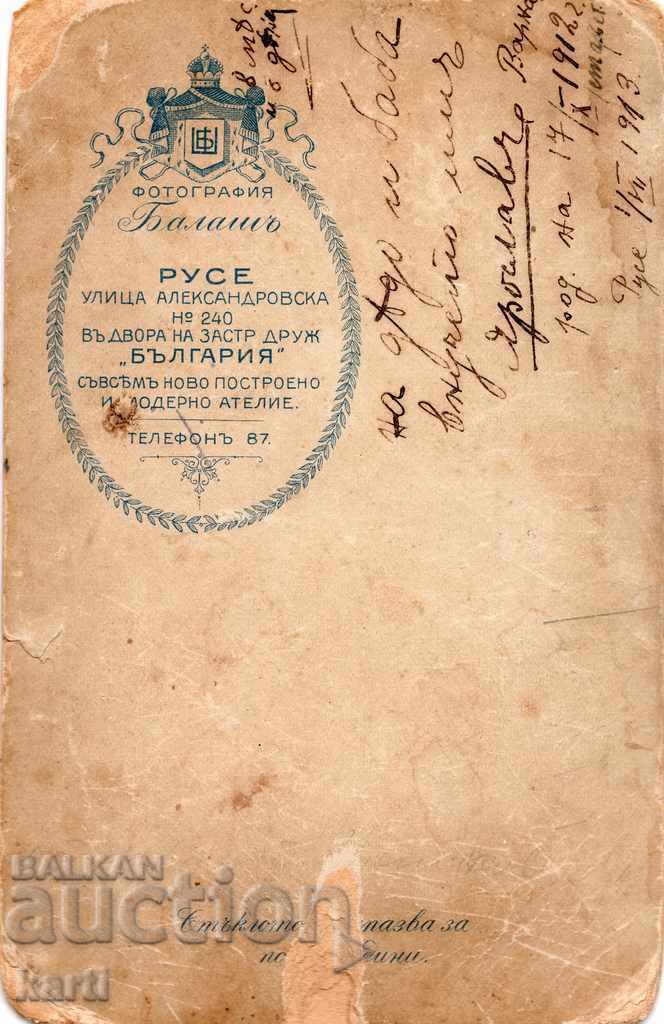 ФОТОГРАФИЯ
Балашъ
РУСЕ
УЛИЦА АЛЕКСАНДРОВСКА
№ 240
ВЪ ДВОРА НА ЗАСТР ДРУЖ
„БЪЛГАРИЯ“
СЪВСѢМЪ НОВО ПОСТРОЕНО
И МОДЕРНО АТЕЛИЕ.
ТЕЛЕФОНЪ 87.
на дядо и баба
внучето имъ
Ярославъ Варна
род. на 17/IX - 1912 г.
Русе 1/VII 1913
Стъклото пазва за
BALKAN
auction
karti